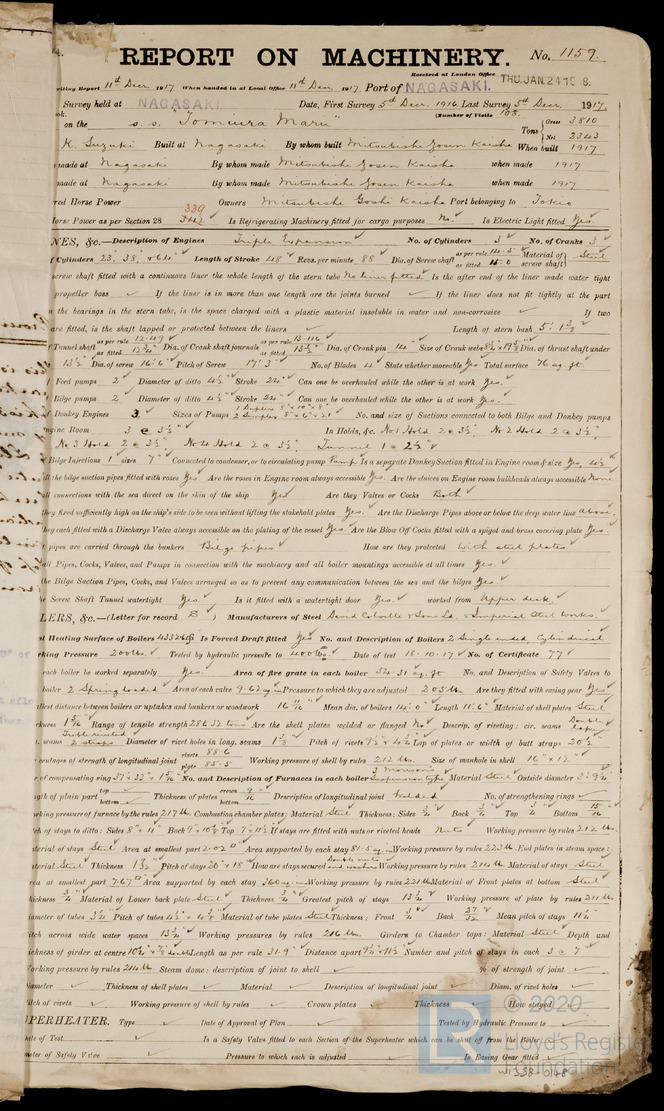 REPORT ON MACHINERY. No. 1159.
Received at London Office THU. JAN. 24 1918.
Writing Report 11th Decr. 1917 When handed in at Local Office 11th Decr. 1917. Port of NAGASAKI
Survey held at NAGASAKI. Date, First Survey 5th Decr. 1916. Last Survey 5th Decr. 1917.
(Number of Visits 108.
on the s. s. "Tomiura Maru" Tons Gross 3810
Net 2343
K. Suzuki Built at Nagasaki By whom built Mitsubishi Zosen Kaisha When built 1917
made at Nagasaki By whom made Mitsubishi Zosen Kaisha when made 1917
made at Nagasaki By whom made Mitsubishi Zosen Kaisha when made 1917
Horse Power Owners Mitsubishi Goshi Kaisha Port belonging to Tokio
Horse Power as per Section 28 339 Is Refrigerating Machinery fitted for cargo purposes No. Is Electric Light fitted Yes.
NES, &c.—Description of Engines Triple Expansion No. of Cylinders 3 No. of Cranks 3
Cylinders 23, 38, & 64 Length of Stroke 48" Revs. per minute 88 Dia. of Screw shaft as per rule as fitted 15.0 Material of screw shaft Steel
screw shaft fitted with a continuous liner the whole length of the stern tube No liner fitted Is the after end of the liner made water tight
propeller boss If the liner is in more than one length are the joints burned If the liner does not fit tightly at the part
the bearings in the stern tube, is the space charged with a plastic material insoluble in water and non-corrosive If two
are fitted, is the shaft lapped or protected between the liners Length of stern bush 5'.
Tunnel shaft as per rule 12.49 as fitted 12 3/4 Dia. of Crank shaft journals as per rule 13.116 as fitted 13 1/2 Dia. of Crank pin 14 Size of Crank webs Dia. of thrust shaft under
13 1/2 Dia. of screw 16'.6 Pitch of Screw 17'.3" No. of Blades 4 State whether moveable Yes Total surface 76 sq. ft.
Feed pumps 2 Diameter of ditto 4 1/2 Stroke 24" Can one be overhauled while the other is at work Yes.
Bilge pumps 2 Diameter of ditto 4 1/2 Stroke 24" Can one be overhauled while the other is at work Yes.
Donkey Engines 3 Sizes of Pumps No. and size of Suctions connected to both Bilge and Donkey pumps
Engine Room 3 @ 3 1/2" In Holds, &c. No 1 Hold 2 @ 3 1/2 No 2 Hold 2 @ 3 1/2
No 3 Hold 2 @ 3 1/2 No 4 Hold 2 @ 3 1/2 Tunnel 1 @ 2 1/2
Bilge Injections 1 sizes 7" Connected to condenser, or to circulating pump Pump Is a separate Donkey Suction fitted in Engine room & size Yes,
all the bilge suction pipes fitted with roses Yes. Are the roses in Engine room always accessible Yes. Are the sluices on Engine room bulkheads always accessible None
connections with the sea direct on the skin of the ship Yes Are they Valves or Cocks Both
they fixed sufficiently high on the ship's side to be seen without lifting the stokehold plates Yes. Are the Discharge Pipes above or below the deep water line above
they each fitted with a Discharge Valve always accessible on the plating of the vessel Yes. Are the Blow Off Cocks fitted with a spigot and brass covering plate Yes.
pipes are carried through the bunkers Bilge pipes How are they protected with steel plates
all Pipes, Cocks, Valves, and Pumps in connection with the machinery and all boiler mountings accessible at all times Yes.
the Bilge Suction Pipes, Cocks, and Valves arranged so as to prevent any communication between the sea and the bilges Yes.
Screw Shaft Tunnel watertight Yes. Is it fitted with a watertight door Yes. worked from Upper deck.
LERS, &c.—(Letter for record ) Manufacturers of Steel David Colville & Sons Ld. & Imperial Steel works.
Heating Surface of Boilers Is Forced Draft fitted Yes No. and Description of Boilers 2 Single ended, Cylindrical
Working Pressure 200 lbs. Tested by hydraulic pressure to 400 lbs. Date of test 18.10.17 No. of Certificate 77
each boiler be worked separately Yes. Area of fire grate in each boiler 54.31 sq. ft No. and Description of Safety Valves to
boiler 2 Spring loaded Area of each valve 9.62 Pressure to which they are adjusted 205 lbs Are they fitted with easing gear Yes
smallest distance between boilers or uptakes and bunkers or woodwork Mean dia. of boilers 14'.0" Length 11'.6" Material of shell plates Steel
thickness Range of tensile strength 28 & 32 tons Are the shell plates welded or flanged No Descrip. of riveting: cir. seams Double lap
seams Diameter of rivet holes in long. seams 1 3/8 Pitch of rivets Lap of plates or width of butt straps 20 1/2
percentages of strength of longitudinal joint rivets 88.6 plate 85.5 Working pressure of shell by rules 212 lbs. Size of manhole in shell 16" x 12"
of compensating ring No. and Description of Furnaces in each boiler 3 Morison's Suspension type Material Steel Outside diameter
length of plain part top bottom Thickness of plates crown bottom Description of longitudinal joint Welded No. of strengthening rings
Working pressure of furnace by the rules 217 lbs Combustion chamber plates: Material Steel Thickness: Sides 3/4 Back 3/4 Top 3/4 Bottom 15/16
Pitch of stays to ditto: Sides Back Top If stays are fitted with nuts or riveted heads Nuts Working pressure by rules 212 lbs.
Material of stays Steel Area at smallest part 2.02 Area supported by each stay 81.5 Working pressure by rules 223 lb End plates in steam space:
Material Steel Thickness 1 3/32 Pitch of stays 20" x 18" How are stays secured Double nuts and washers Working pressure by rules 214 lbs Material of stays Steel
Area at smallest part 7.67 Area supported by each stay 360 Working pressure by rules 221 lbs Material of Front plates at bottom Steel
Thickness Material of Lower back plate Steel Thickness Greatest pitch of stays 13 1/2 Working pressure of plate by rules 211 lbs.
Diameter of tubes 3 1/4 Pitch of tubes Material of tube plates Steel Thickness: Front 3/4 Back 27/32 Mean pitch of stays
Pitch across wide water spaces 13 1/2 Working pressures by rules 216 lbs. Girders to Chamber tops: Material Steel Depth and
thickness of girder at centre Length as per rule 31.9" Distance apart Number and pitch of stays in each 3 @ 7
Working pressure by rules 214 lb. Steam dome: description of joint to shell % of strength of joint
Diameter Thickness of shell plates Material Description of longitudinal joint Diam. of rivet holes
Pitch of rivets Working pressure of shell by rules Crown plates Thickness How stayed
UPERHEATER. Type Date of Approval of Plan Tested by Hydraulic Pressure to
Date of Test Is a Safety Valve fitted to each Section of the Superheater which can be shut off from the Boiler
Diameter of Safety Valve Pressure to which each is adjusted Is Easing Gear fitted
© 2020
Lloyd's Register
Foundation
W1338-0148